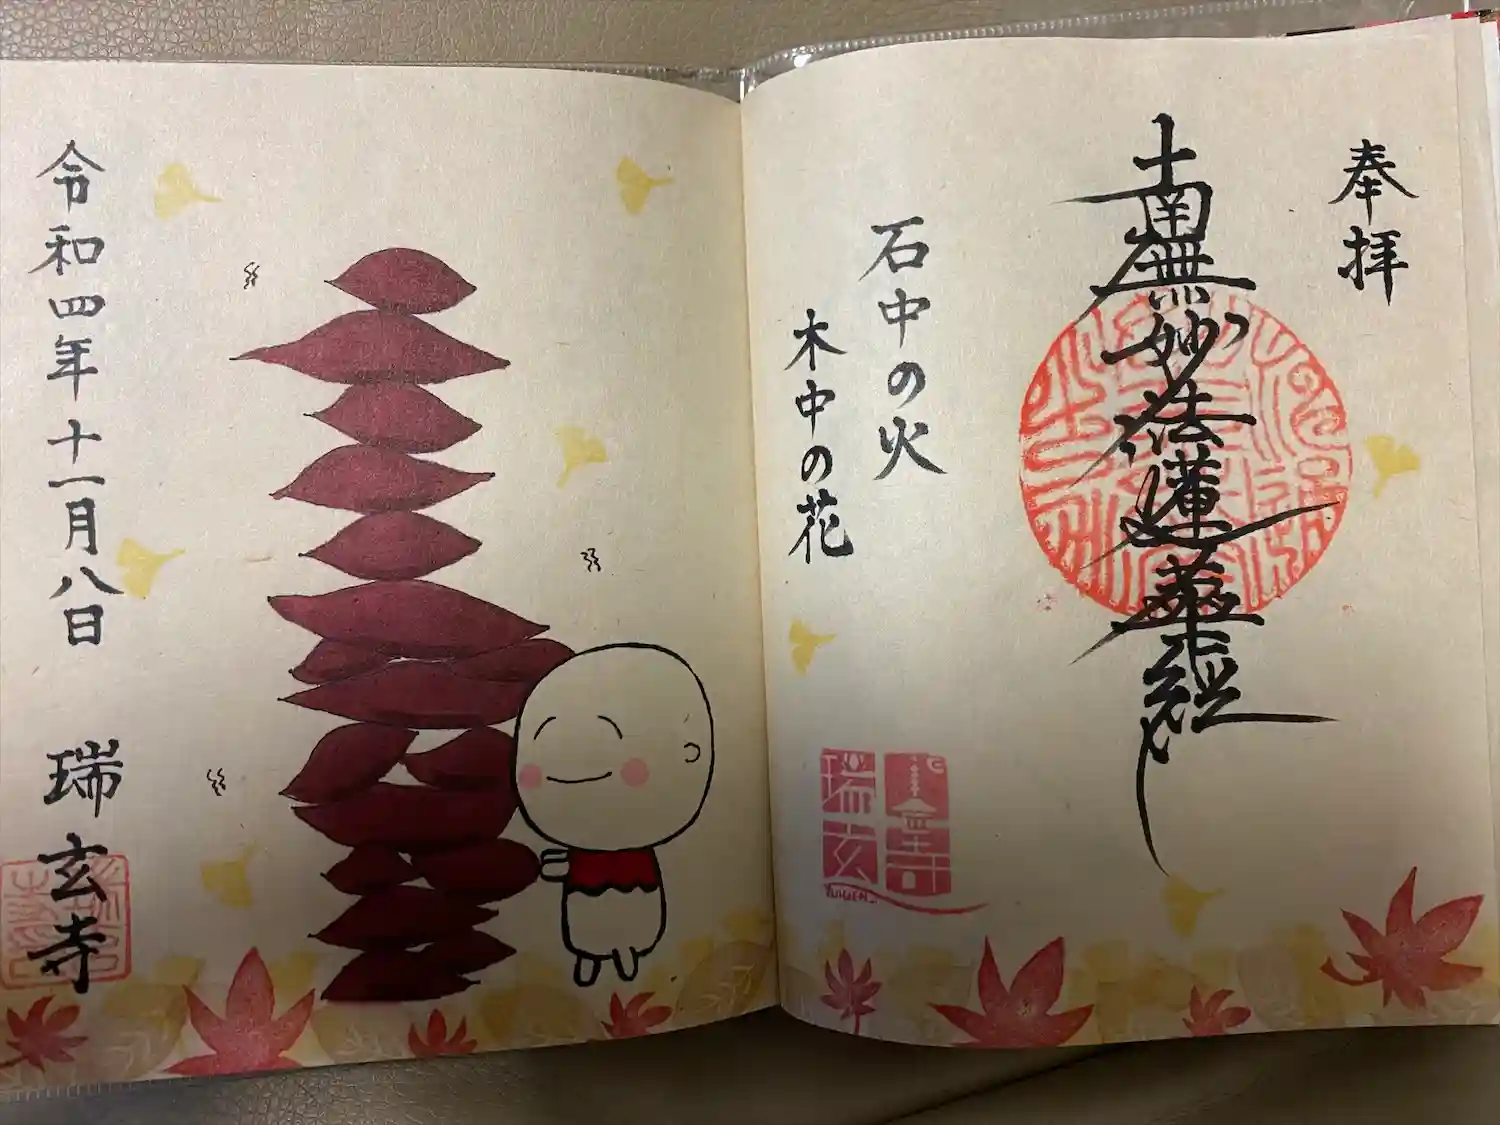 奉拝
南無妙法蓮華経
石中の火
木中の花
瑞玄
ZUIGENJI
令和四年十一月八日
瑞玄寺